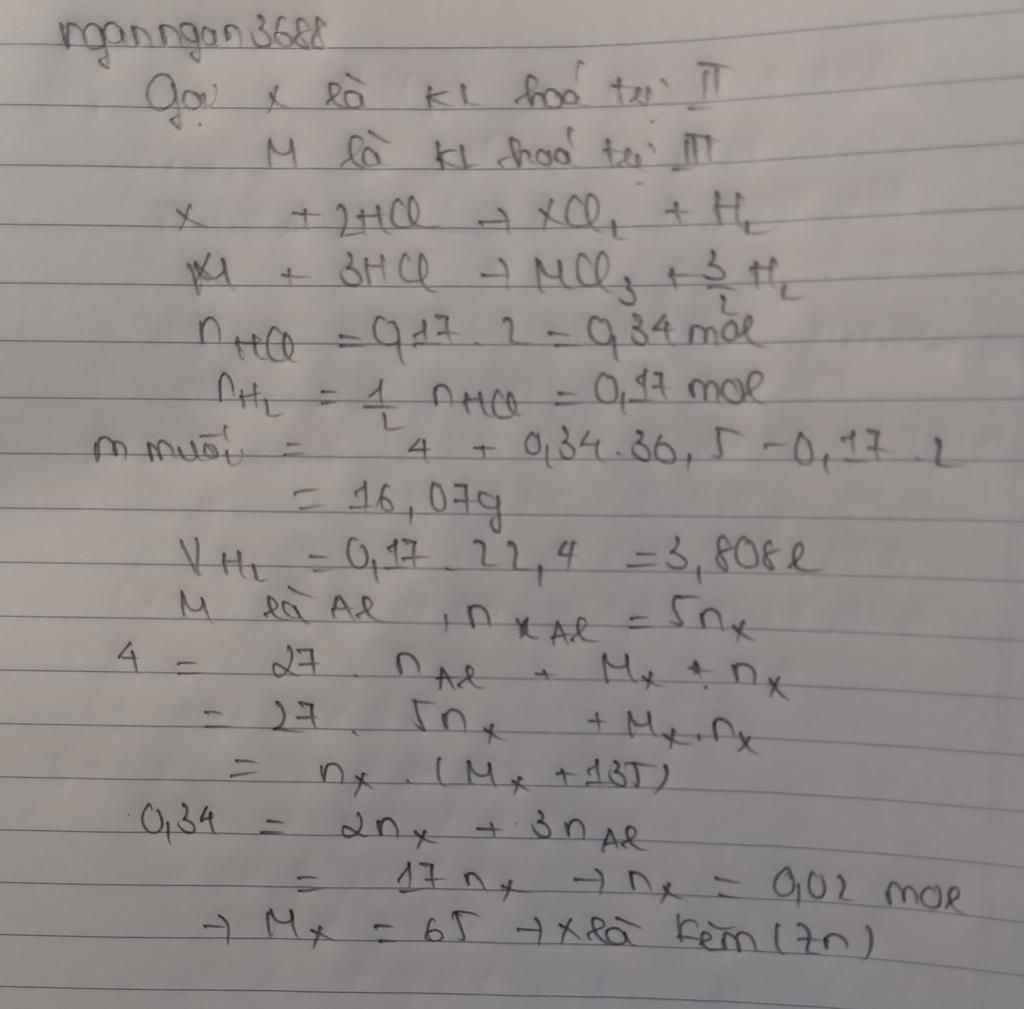 nganngan3688
Gọi x là KL hoá trị II
M là KL hoá trị III
x + 2HCl → xCl₂ + H₂
M + 3HCl → MCl₃ + 3/2 H₂
nHCl = 0,17 . 2 = 0,34 mol
nH₂ = 1/2 nHCl = 0,17 mol
m muối = 4 + 0,34.36,5 - 0,17.2
= 16,07g
VH₂ = 0,17 . 22,4 = 3,808l
M là Al , nAl = 5nx
4 = 27 . nAl + Mx . nx
= 27 . 5nx + Mx.nx
= nx . (Mx + 135)
0,34 = 2nx + 3nAl
= 17nx → nx = 0,02 mol
→ Mx = 65 → x là kẽm (Zn)